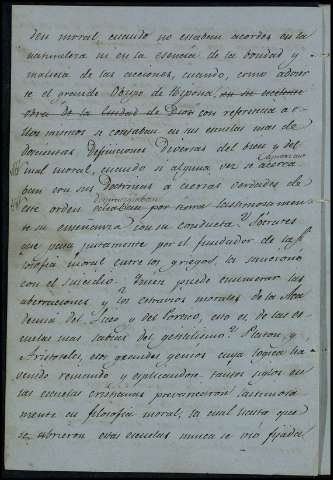 den moral, cuando no estaban acordes en la
naturaleza ni en la esencia de la bondad y
malicia de las acciones, cuando, como advier
te el grande Obispo de Hipona, en su
obra de la Ciudad de Dios con referencia a
ellos mismos se contaban en sus escuelas mas de
doscientas definiciones diversas del bien y del
mal moral, cuando si alguna vez se acerca
ban con sus doctrinas á ciertas verdades de
este orden por tierra lastimosamen
te su enseñanza con su conducta? Sócrates
que pasa justamente por el fundador de la fi
losofia moral entre los griegos, la
con el suicidio. Quien puede enumerar las
aberraciones y los estravios morales de la Aca
demia del Liceo y del Pórtico, esto es, de las es
cuelas mas sabias del gentilismo? Platon, y
Aristóteles, esos grandes genios cuya logica ha
venido reinando y esplicandose tantos siglos en
las escuelas cristianas prevaricaron lastimosa
mente en filosofia moral, la cual hasta que
se abrieron estas escuelas nunca se vió fijada